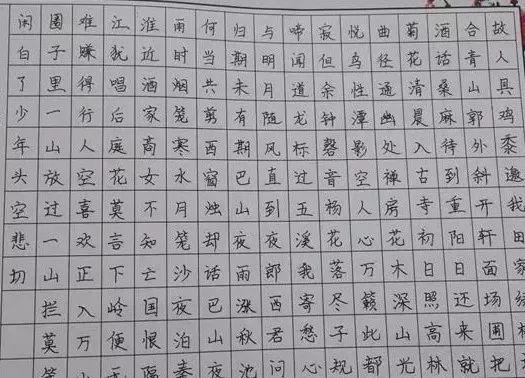 故人具鸡黍邀我田家
合青山郭外斜开轩面场圃把
酒话桑麻待到重阳日还来就
菊花清晨入古寺初日照高林
曲径通幽处禅房花木深山光
悦鸟性潭影空人心万籁此都
寂但余钟磬音杨花落尽子规
啼闻道龙标过五溪我寄愁心
与明月随风直到夜郎西君问
归期未有期巴山夜雨涨秋池
何当共剪西窗烛却话巴山夜
雨时烟笼寒水月笼沙夜泊秦
淮近酒家商女不知亡国恨隔
江犹唱后庭花莫言下岭便无
难赚得行人空喜欢正入万山
圈子里一山放过一山拦莫
闲白了少年头空悲切